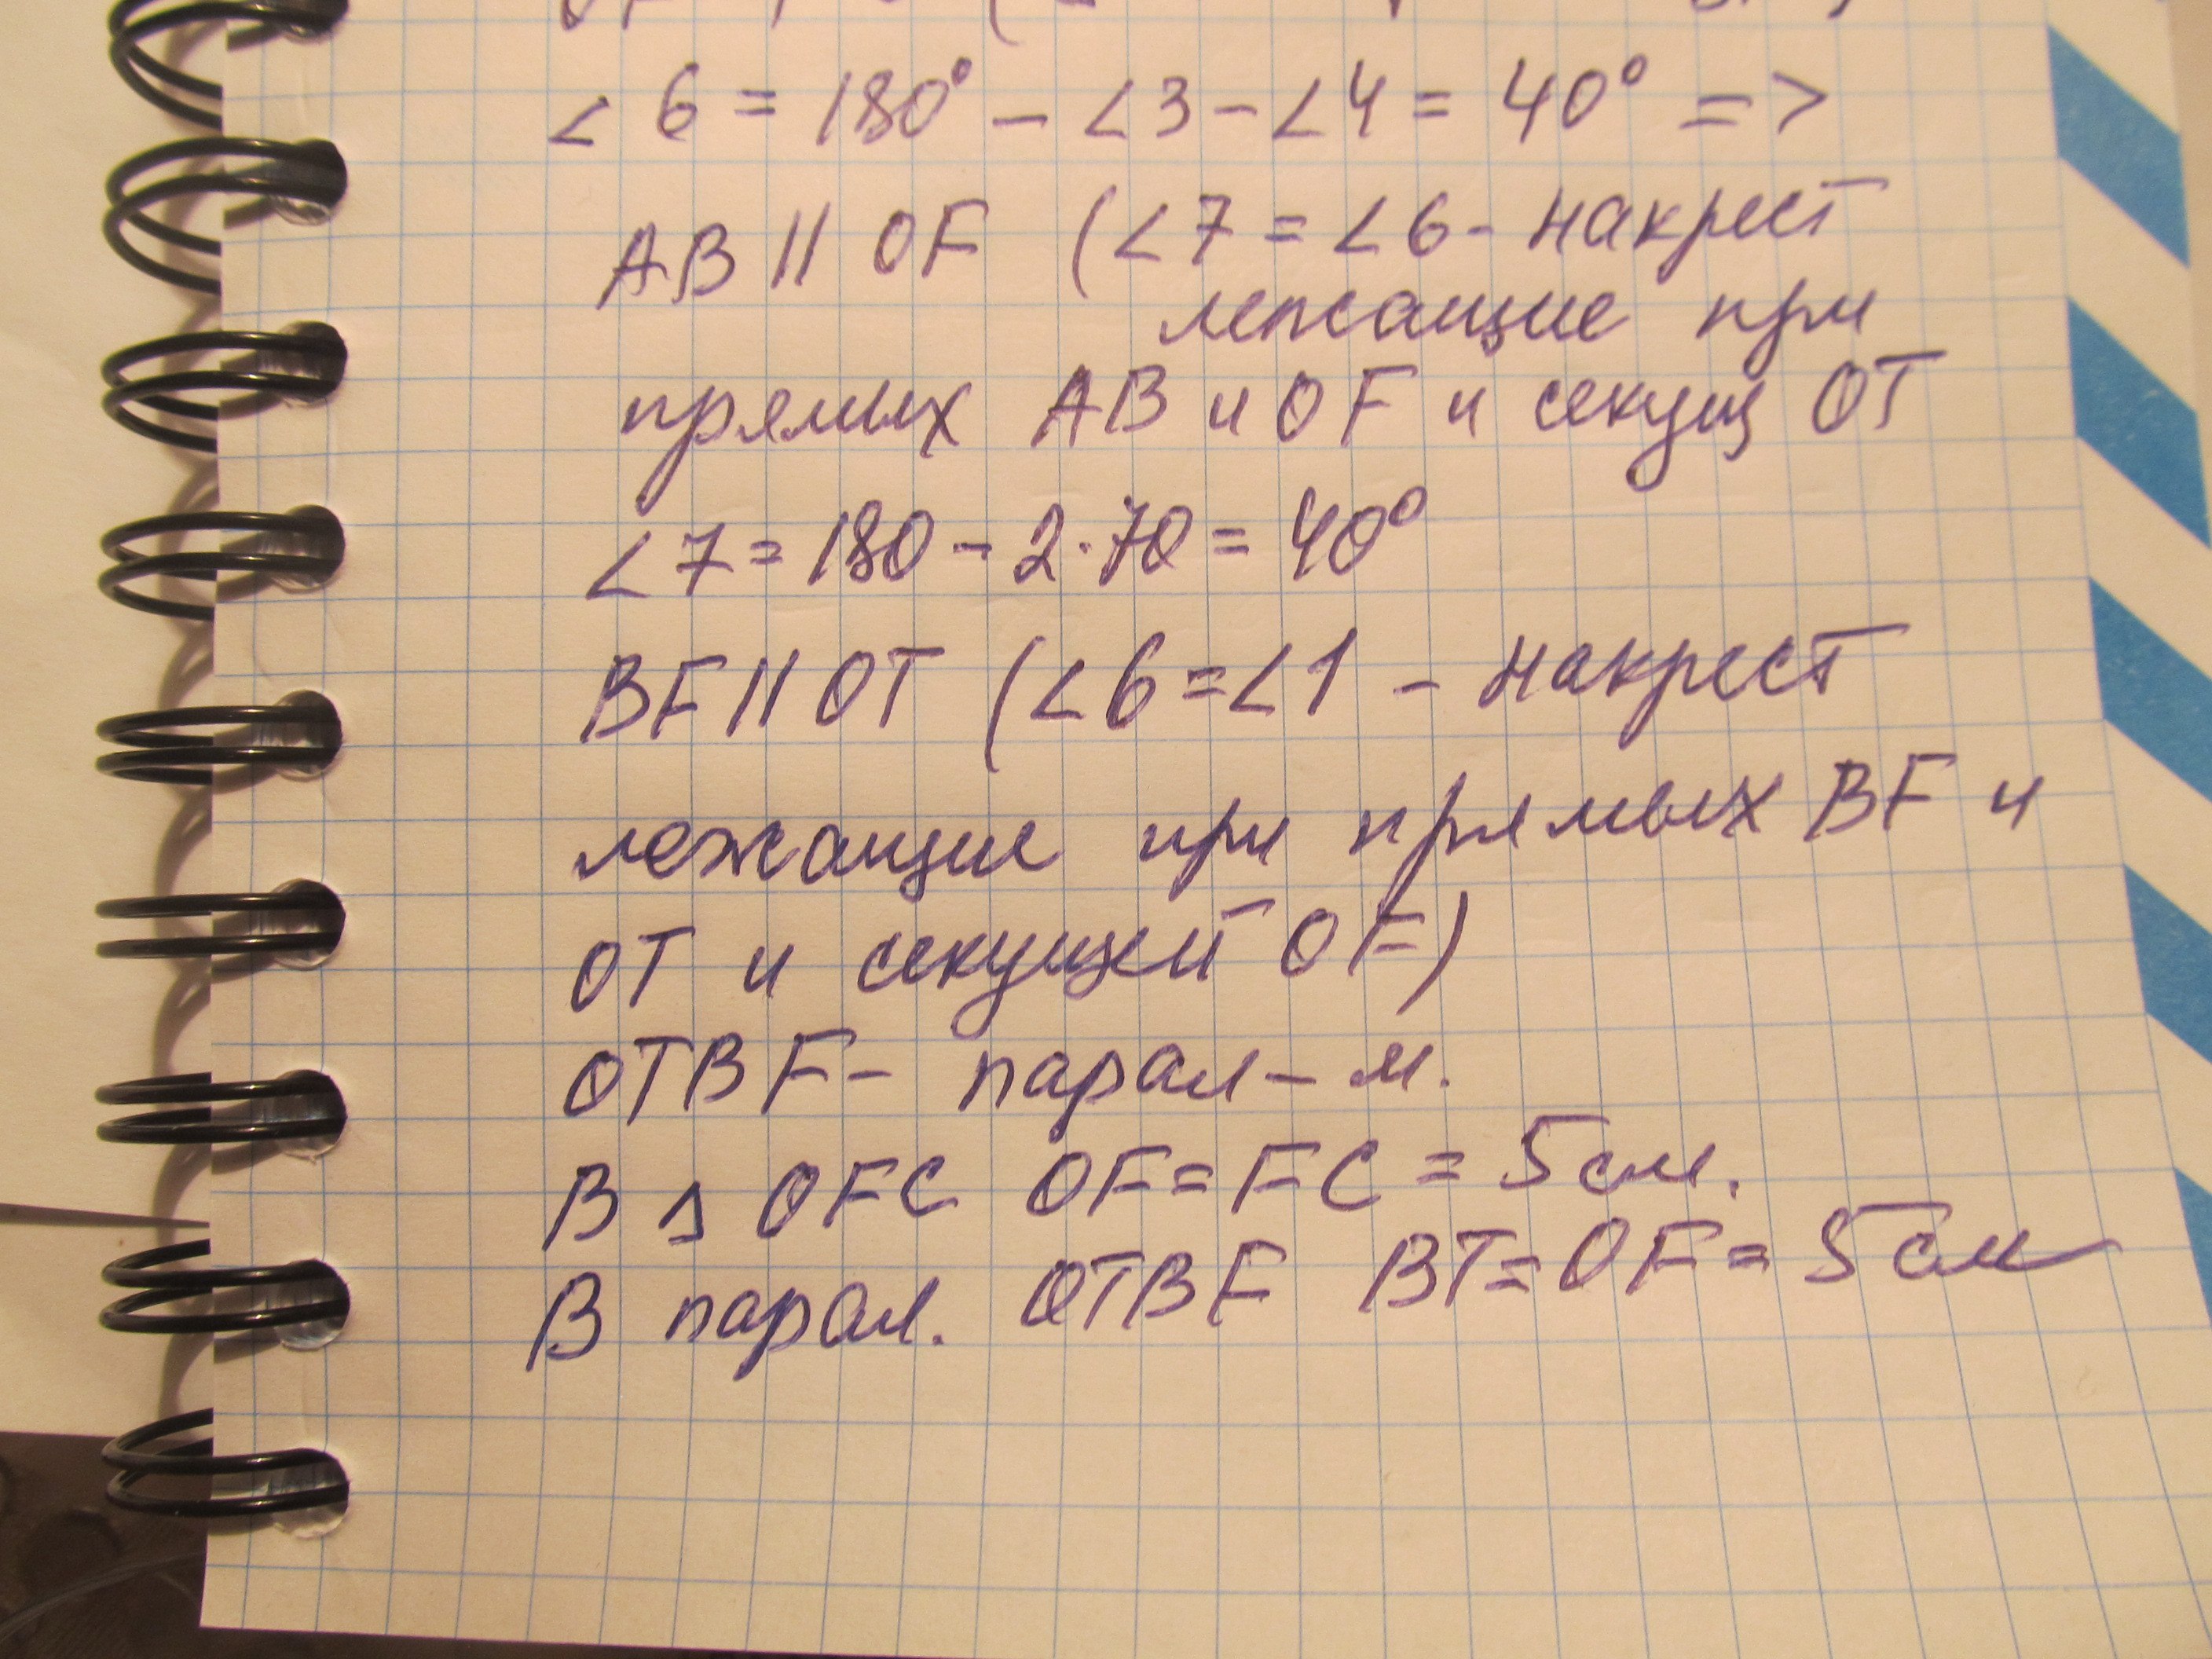 ∠6 = 180° - ∠3 - ∠4 = 40° =>
AB || OF (∠7 = ∠6 - накрест
лежащие при
прямых AB и OF и секущ OT
∠7 = 180 - 2·70 = 40°
BF || OT (∠6 = ∠1 - накрест
лежащие при прямых BF и
OT и секущей OF)
OTBF - парал-м.
В △ OFC OF = FC = 5 см.
В парал. OTBF BT = OF = 5 см